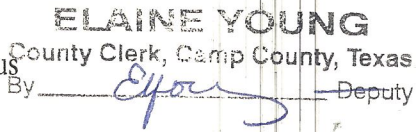 ELAINE YOUNG
County Clerk, Camp County, Texas
us
By Deputy